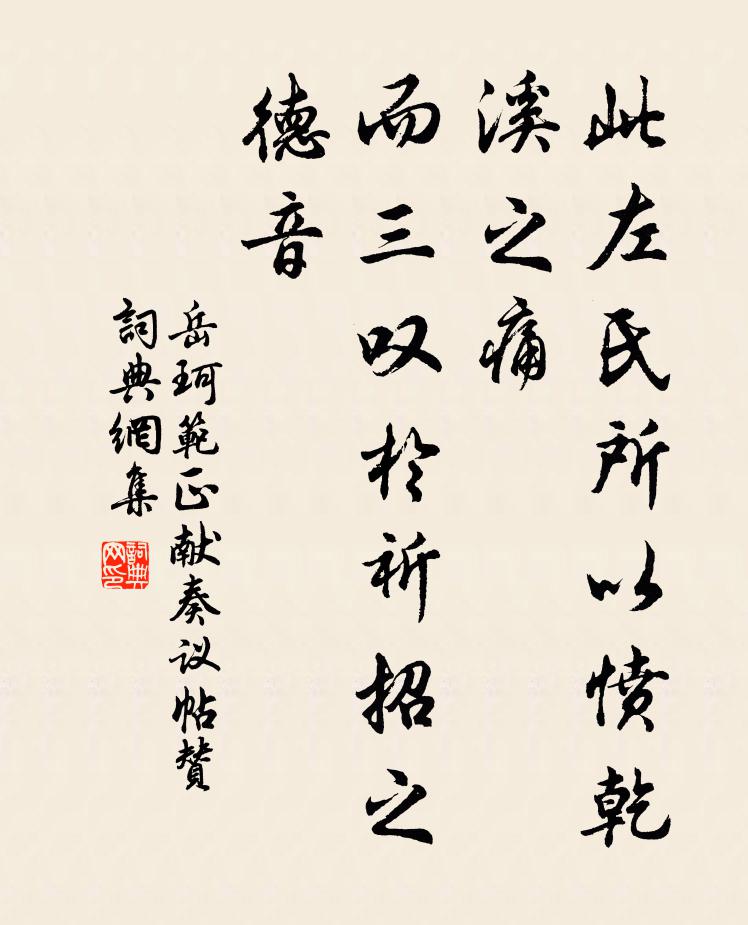 此左氏所以愤乾
溪之痛
而三叹於祈招之
德音
岳珂範正献奏议帖赞
詞典網集
詞典
网印